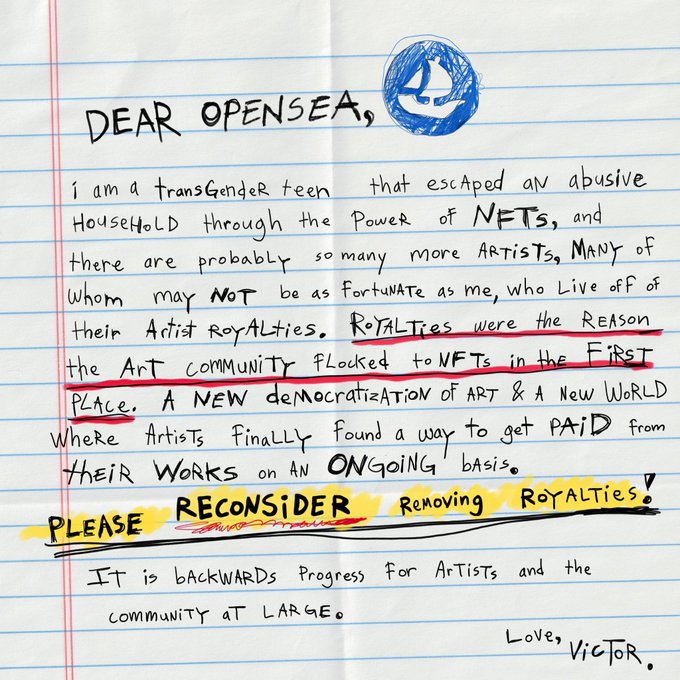 DEAR OPENSEA,
i am a transGendeR teen that escAped aN abusive
HouseHoLD through the PoweR of NFTs, and
there are probabLy so many more ARTisTs, MANy of
whom may NOT be as FortuNATe as me, who Live off of
their Artist RoyALties. RoYALTies were the REASON
the ART community FLocked to NFTs in the FiRST
PLAce. A NEW demoCratizATioN of ART & A New WoRLD
wheRe ArtisTs FinaLLy Found a way to get PAiD from
tHEiR WoRKs on AN ONGOiNG basis.
PLEASE RECONSiDER Removing RoyALTies!
IT is bAcKWARDs Progress For ArTisTs and the
communiTY aT LARGe.
Love,
VicToR.